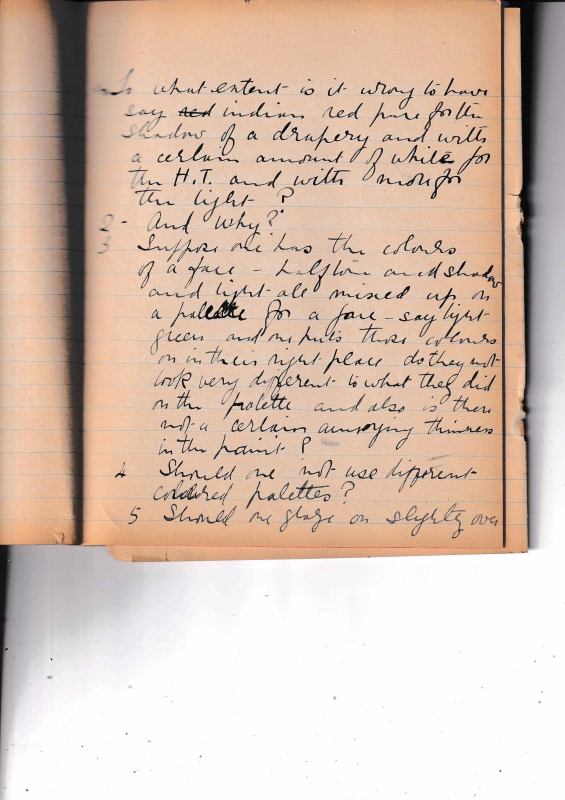 To what extent is it wrong to have
say red indian red pure for the
shadow of a drapery and with
a certain amount of white for
the H.T. and with more for
the light?
2 - And why?
3 Suppose one has the colours
of a face - halftone and shadow
and light all mixed up on
a palette for a face - say light
green and one puts those colours
on in their right place do they not
look very different to what they did
on the palette and also is there
not a certain annoying thinness
in the paint?
4 Should one not use different
coloured palettes?
5 Should one glaze on slightly over